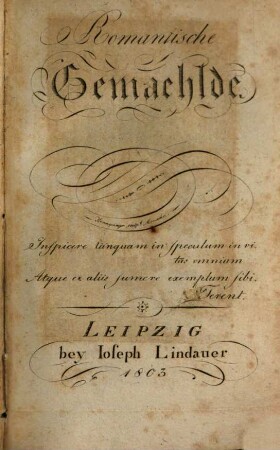 Romantische
Gemaehlde.
Inspicere tanquam in speculum in vi-
tas omnium
Atque ex aliis sumere exemplum sibi.
Terent.
LEIPZIG
bey Ioseph Lindauer
1803